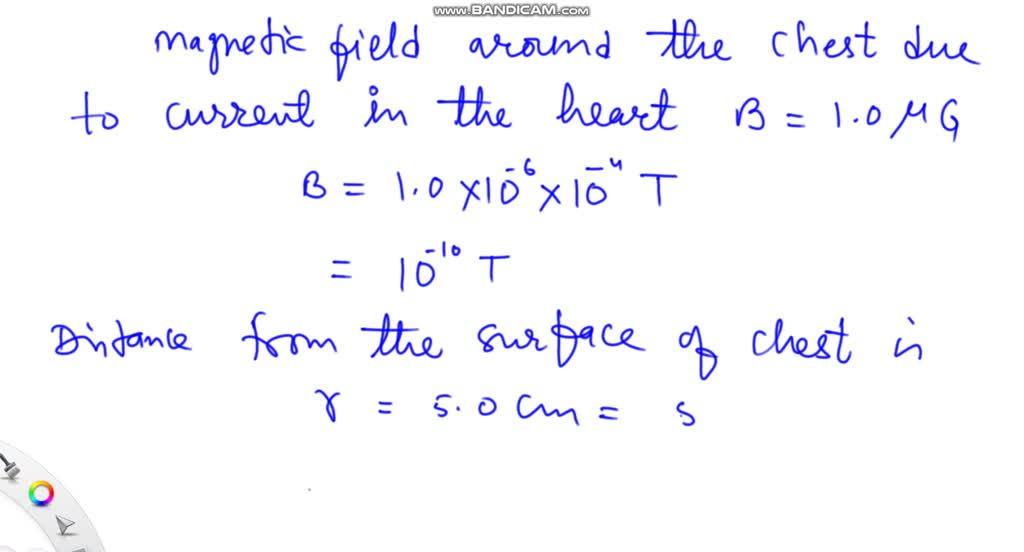 www.BANDICAM.com
magnetic field around the chest due
to current in the heart B = 1.0 μG
B = 1.0 × 10⁻⁶ × 10⁻⁴ T
= 10⁻¹⁰ T
Distance from the surface of chest is
r = 5.0 cm = 5